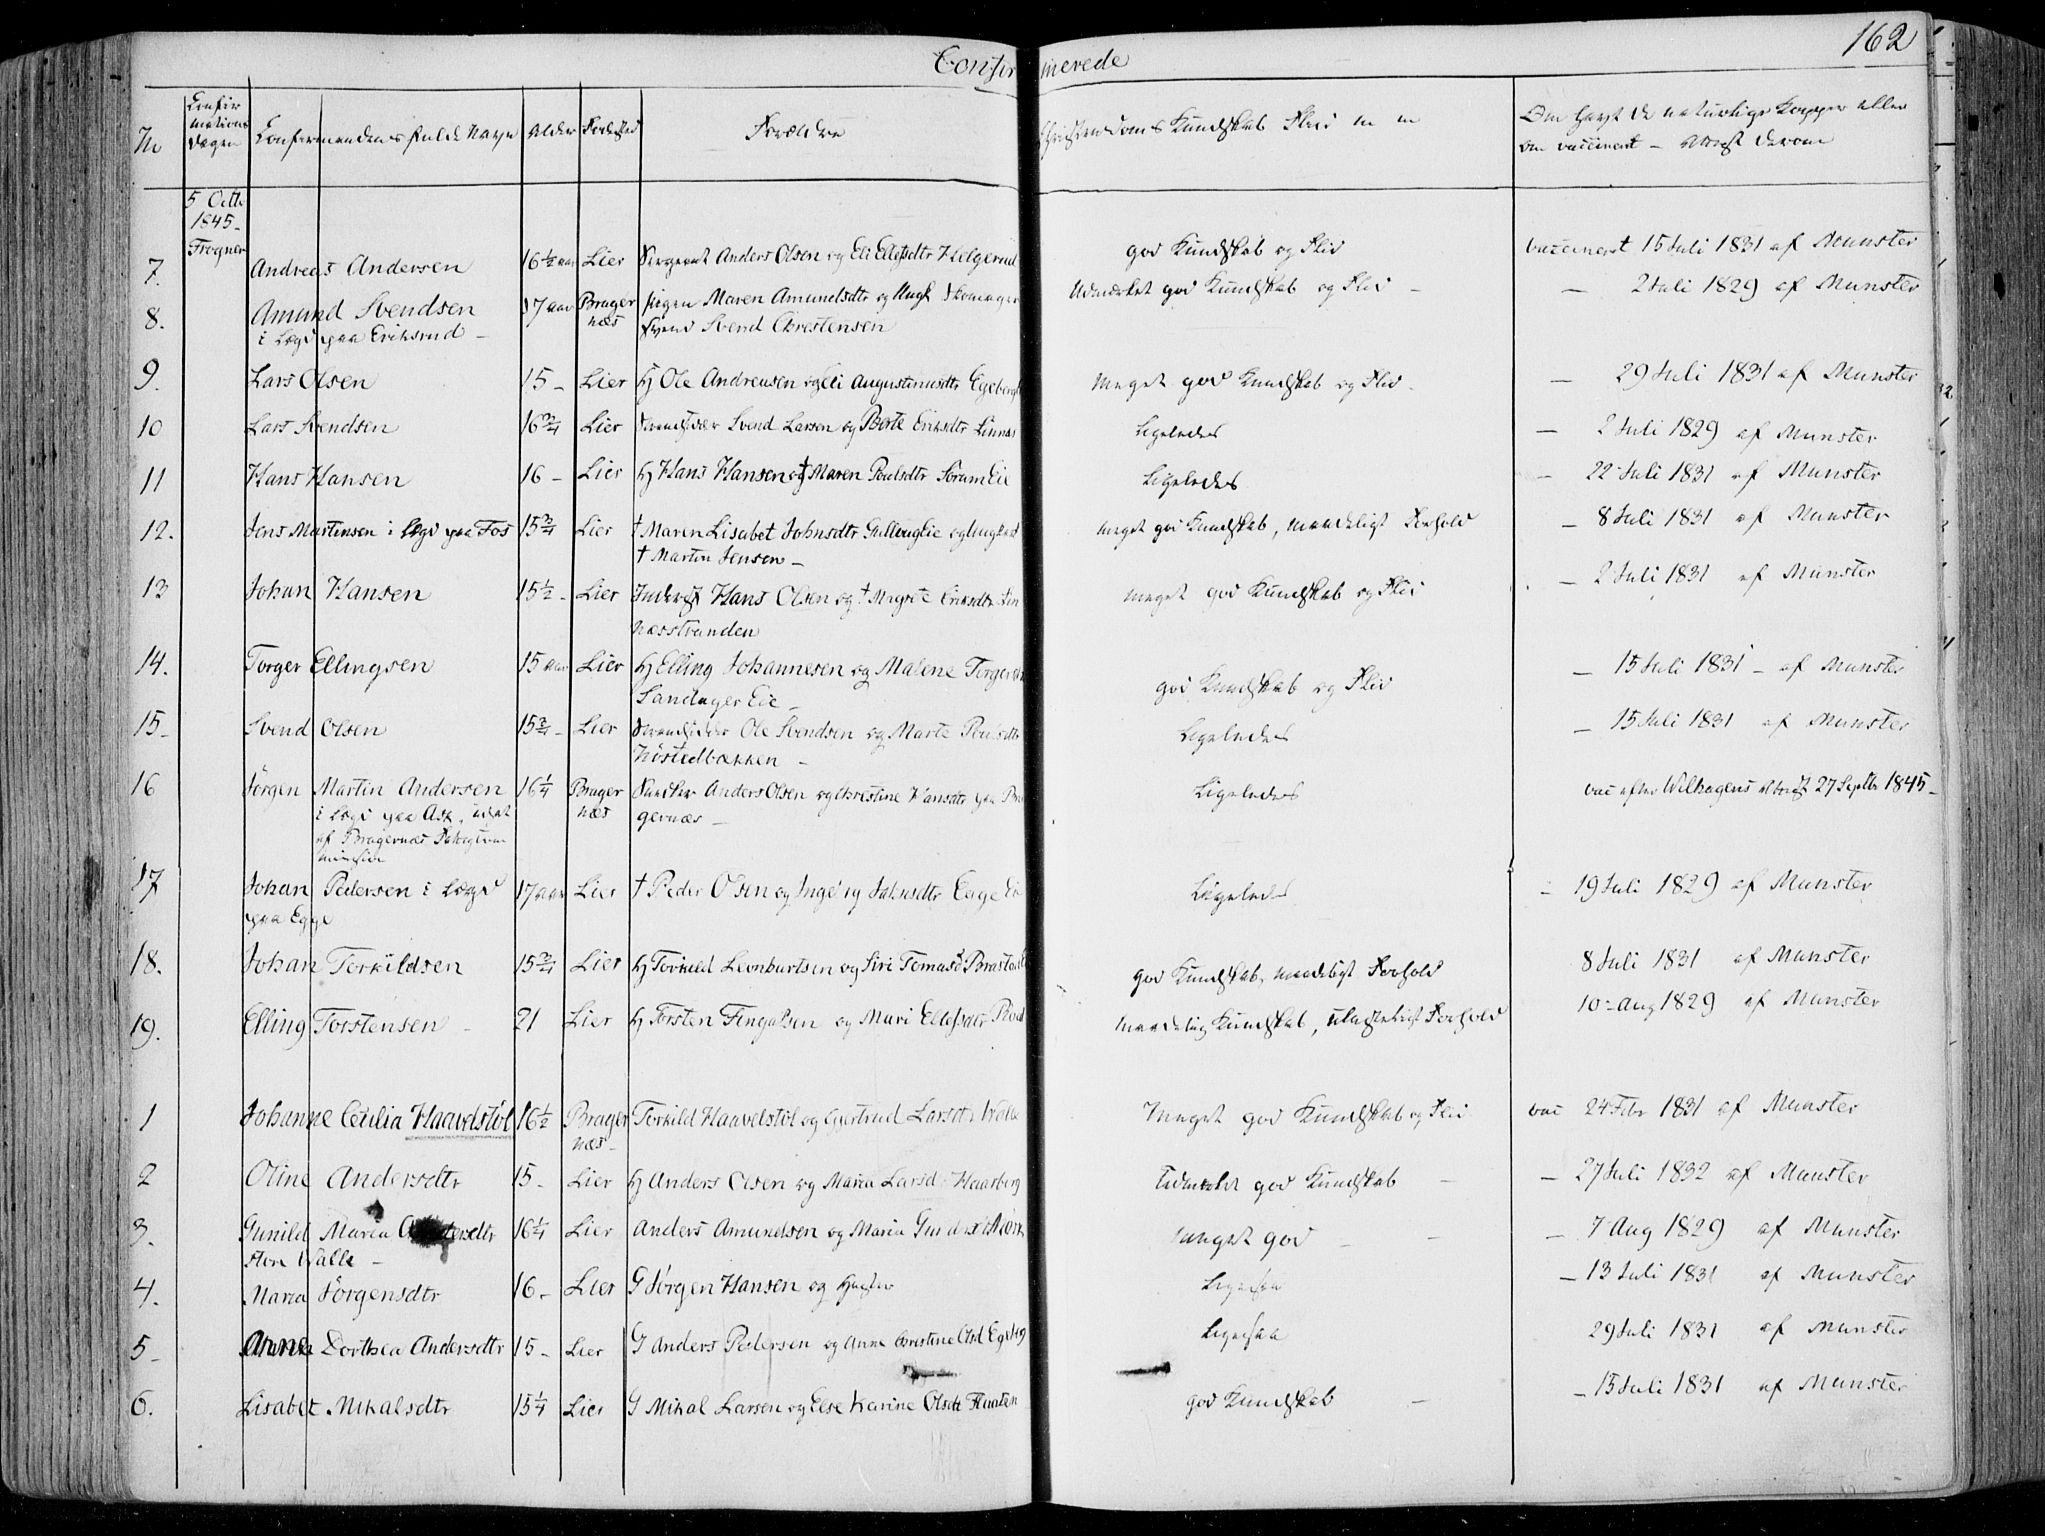 Confirmerede 162
No Confirmations Dagen Confirmandens fulde Navn Alder Fødested Forældre Christendoms Kundskab Flid m m Om havt de naturlige Kopper eller
om vaccineret – Attest derom
5 Octbr
1845 –
Frogner
7. Andreas Andersen 16½ aar Lier Sergeant Anders Olsen og Eli Ellefsdtr Helgerud god Kundskab og Flid vaccineret 15 Juli 1831 af Munster
8. Amund Svendsen 17 aar Bragernæs pigen Maren Amundsdtr og Ungk Skomager Udmærket god Kundskab og Flid – – 2 Juli 1829 af Munster
i Lægd paa Eriksrud – Svend Christensen
9. Lars Olsen 15 – Lier Hj Ole Andreasen og Eli Augustinusdtr Egeberg meget god Kundskab og Flid – – 29 Juli 1831 af Munster
10 Lars Svendsen 16¾ Lier Svend Larsen og Berte Eriksdtr Linnæs Ligeledes – 2 Juli 1829 af Munster
11 Hans Hansen 16 – Lier Hj Hans Hansen og † Maren Poulsdtr Sørum Eie Ligeledes – 22 Juli 1831 af Munster
12. Jens Martinsen i Lægd paa Fos 15¾ Lier † Maren Lisabet Johnsdtr Gullaug Eie og Ungkarl meget god Kundskab, maadeligt Forhold – 8 Juli 1831 af Munster
† Martin Jensen –
13 Johan Hansen 15½ – Lier Inderst Hans Olsen og † Magrete Eriksdtr Lin meget god Kundskab og Flid – 2 Juli 1831 af Munster
næsstranden
14. Torger Ellingsen 15 aar Lier Hj Elling Johannesen og Malene Torgersdtr god Kundskab og Flid – 15 Juli 1831 – af Munster
Landager Eie –
15 – Svend Olsen 15¾ – Lier Ole Svendsen og Marte Poulsdtr Ligeledes – 15 Juli 1831 af Munster
Høstedbakken –
16 Jörgen Martin Andersen 16¼ Bragernæs Anders Olsen og Christine Hansdtr paa Bra Ligeledes vac efter Wilhagens Attest 27 Septbr 1845 –
i Lægd paa Ask, udsat gernæs –
af Bragernæs
17 Johan Pedersen i Lægd 17 aar Lier † Peder Olsen og Inge Egge Eie Ligeledes – 19 Juli 1829 af Munster
paa Egge
18. Johan Torkildsen 15¾ Lier Hj Torkild Leonhartsen og Siri Tomasd god Kundskab, maadeligt Forhold 8 Juli 1831 af Munster
19. Elling Torstensen – 21 Lier Hj Torsten Fingalsen og Mari Ellefsdtr maadelig Kundskab, ulasteligt Forhold 10 – Aug 1829 af Munster
1 Johanne Cecilia Haavelstöl 16½ Bragernæs – Torkild Haavelstöl og Gjertrud Larsdtr Walle Meget god Kundskab og Flid vac 24 Febr 1831 af Munster
2 Oline Andersdtr 15 – Lier Hj Anders Olsen og Maria Larsd Haarberg Udmærket god Kundskab – – 27 Juli 1832 af Munster
3. Gunild Maria Andersdtr 16¼ Lier Anders Amundsen og Maria meget god – – – 7 Aug 1829 af Munster
store Walle –
4. Maria Jörgensdtr 16 – Lier G Jörgen Hansen og Hustru Ligesaa – 13 Juli 1831 af Munster
5 – Anne Dorthea Andersdtr 15 – Lier G Anders Pedersen og Anne Christine Olsd Egeberg Ligesaa 29 Juli 1831 af Munster
6. Lisabet Mikalsdtr 15¼ Lier G Mikal Larsen og Else Karine Olsdtr god Kundskab – – 15 Juli 1831 af Munster